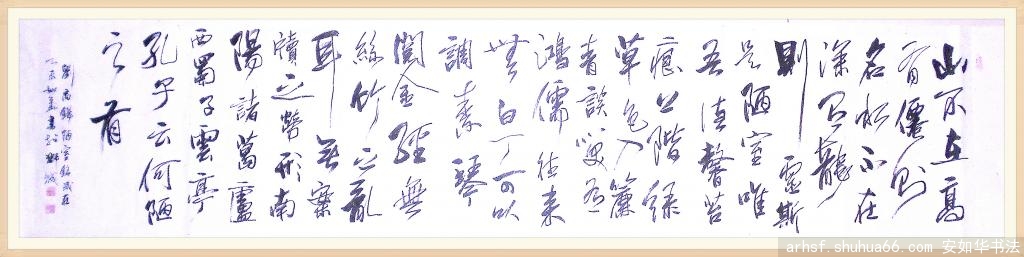 山不在高
有僊則
名水不在
深有龍
則靈斯
是陋室唯
吾德馨苔
痕上階綠
草色入簾
青談笑有
鴻儒往來
無白丁可以
調素琴
閱金經無
絲竹之亂
耳無案
牘之勞形南
陽諸葛廬
西蜀子雲亭
孔子云何陋
之有
劉禹錫陋室銘歲在
arhsf.shuhua66.com 安如华书法